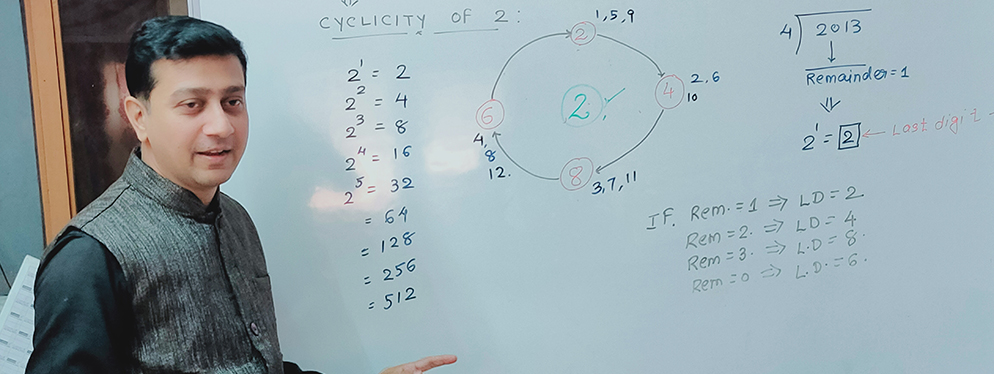 CYCLICITY OF 2:
2¹ = 2
2² = 4
2³ = 8
2⁴ = 16
2⁵ = 32
= 64
= 128
= 256
= 512
1, 5, 9
2
2, 6
10
4
2
6
4,
8
12.
8
3, 7, 11
4) 2013
Remainder = 1
2¹ = 2 ← Last digit
IF. Rem. = 1 ⇒ LD = 2
Rem = 2. ⇒ LD = 4
Rem = 3. ⇒ L.D = 8.
Rem = 0 ⇒ L.D. = 6.